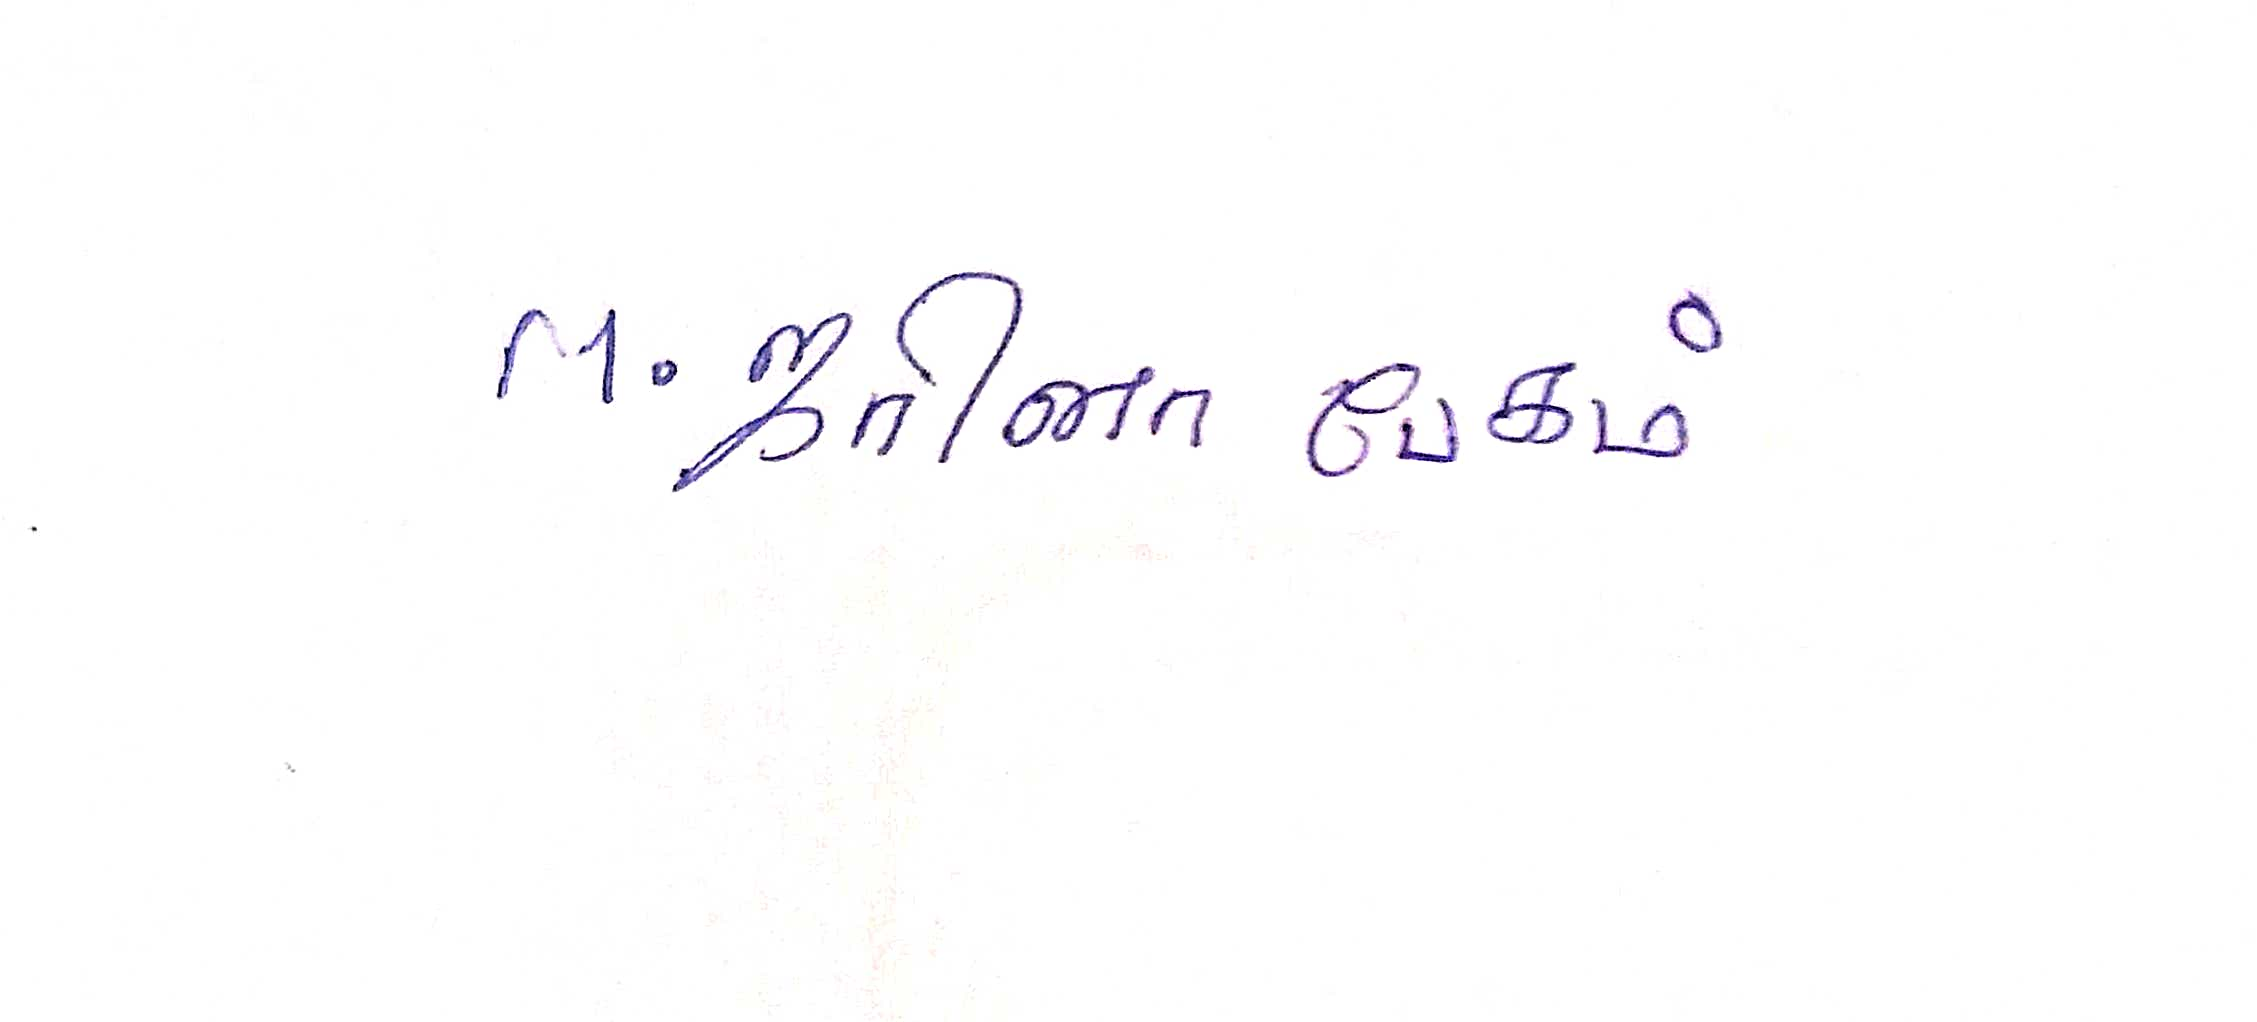 M. ஜரினா பேகம்